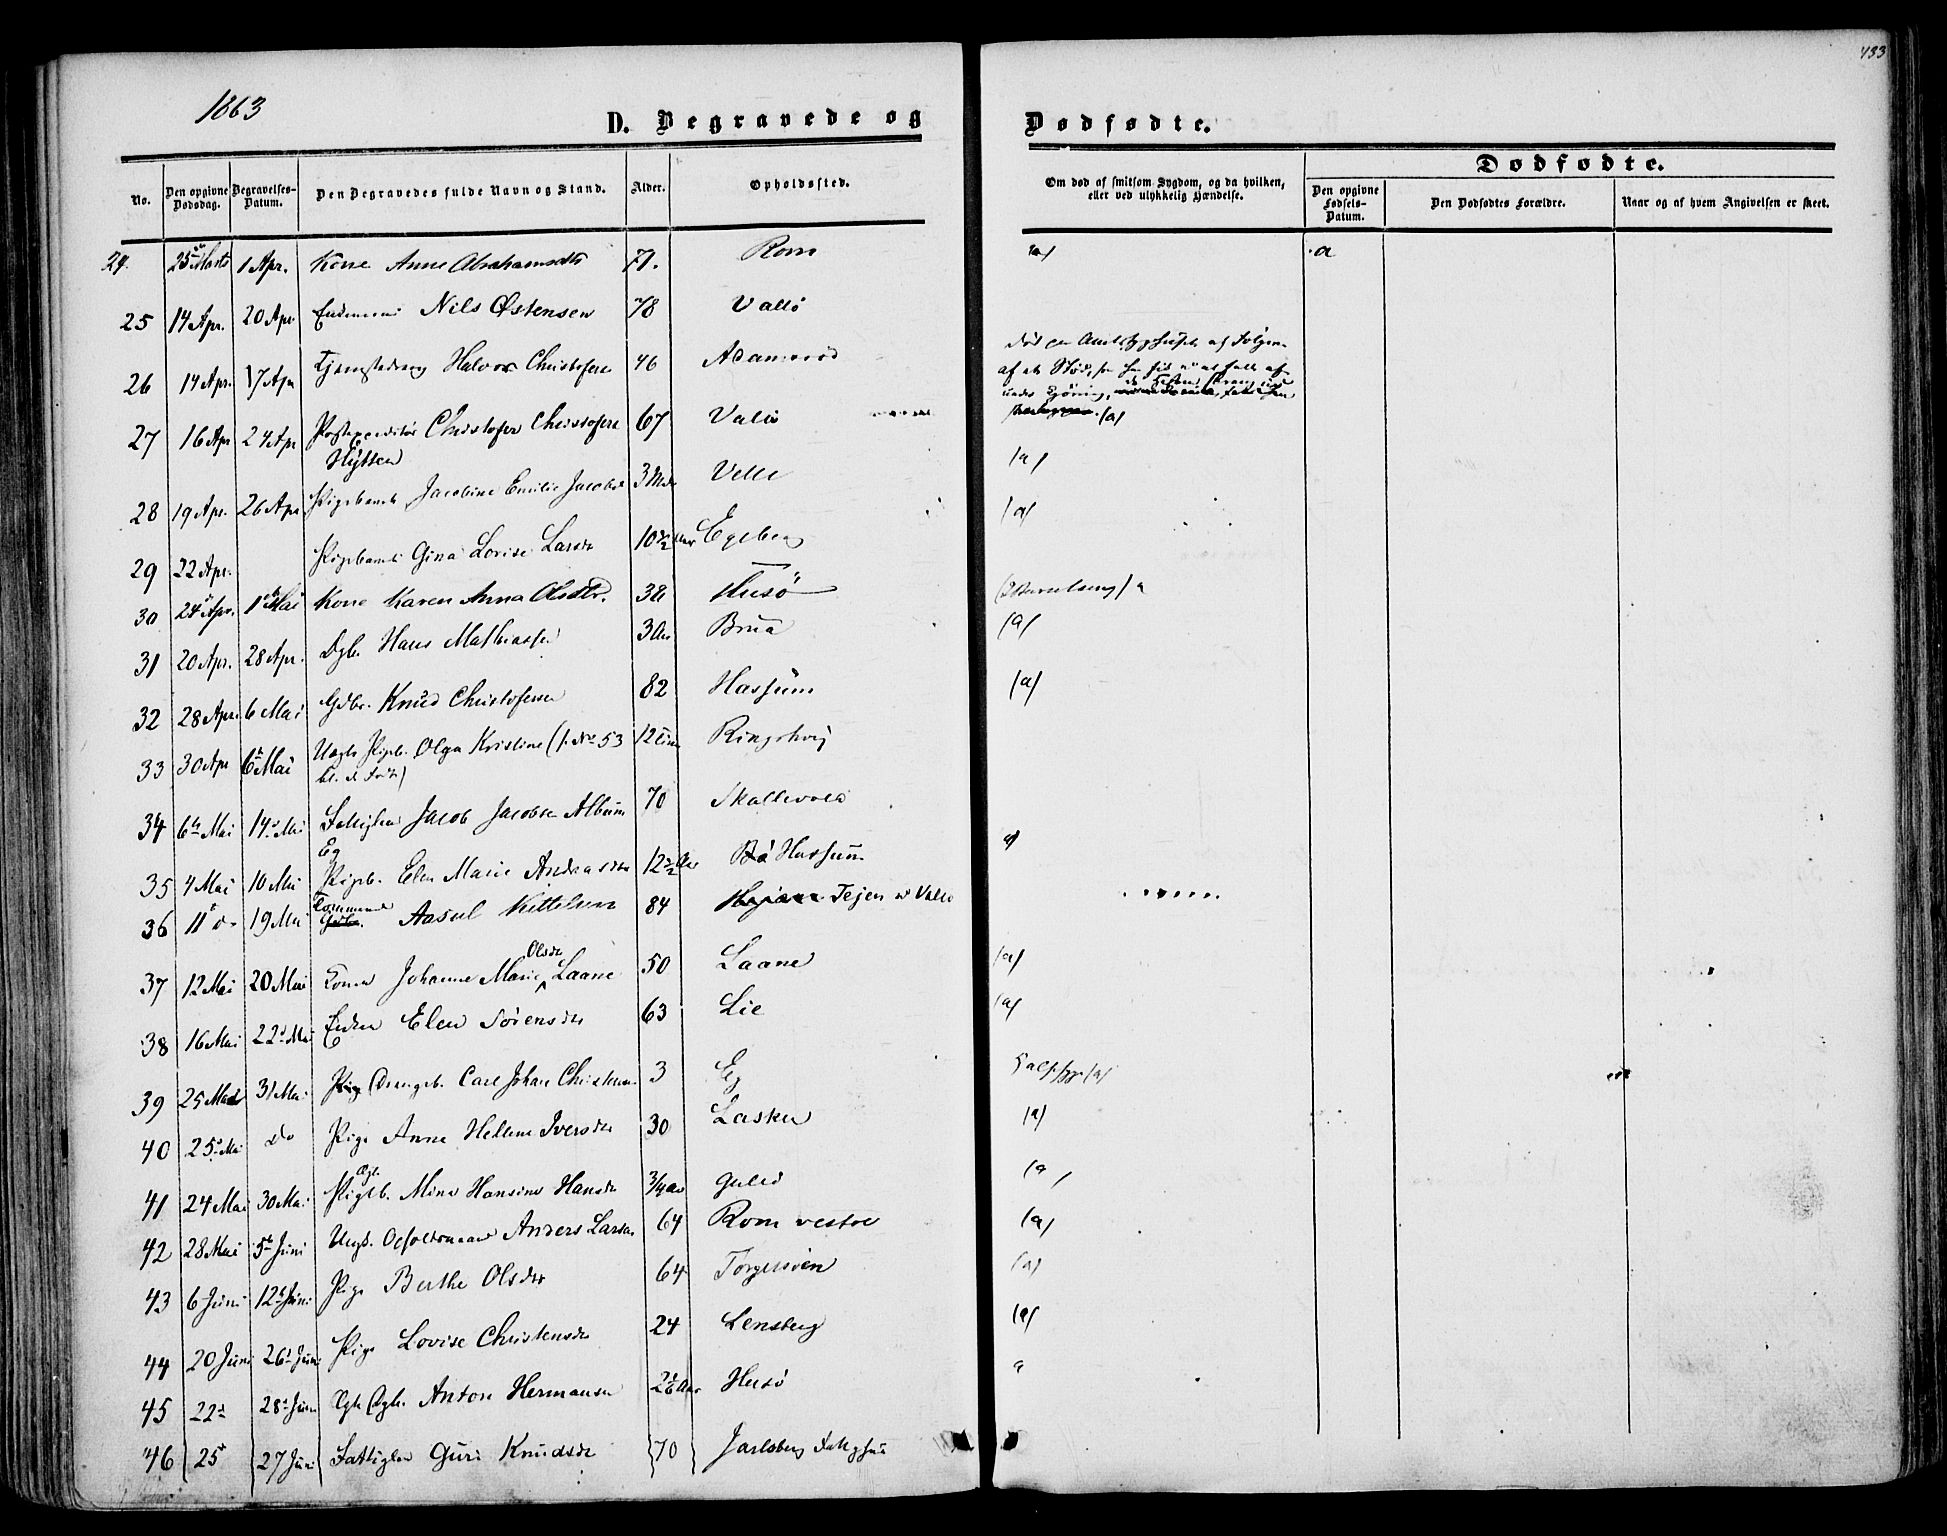 433
1863
D. Begravede og
Dødfødte.
No.
Den opgivne Dødsdag.
Begravelses-Datum.
Den Begravedes fulde Navn og Stand.
Alder.
Opholdssted.
Om død af smitsom Sygdom, og da hvilken, eller ved ulykkelig Hændelse.
Dødfødte.
Den opgivne Fødsels-Datum.
Den Dødfødtes Forældre.
Naar og af hvem Angivelsen er skeet.
24. 25 Marts 1 Apr. Kone Anne Abrahamsdtr 71. Rom (a) a
25 14 Apr. 20 Apr Nils Østensen 78 Vallö
26 14 Apr. 17 Apr Halvor Christofersen 46 Adamsröd
27 16 Apr 24 Apr Postexpeditör Christofer Christofersen 67 Vallö
Hytten (a)
28 19 Apr. 26 Apr Pigebarnet Jacobine Emilie Jacobsd 3 Md Velle (a)
29 22 Apr. Pigebarnet Gina Lovise Larsdr 10½ Aar Egeberg
30 24 Apr. 1 Mai Kone Karen Anna Olsdtr. 38 Husö a
31 20 Apr. 28 Apr. Dgb. Hans Mathiassen 3 Aar Brua (a)
32 28 Apr. 6 Mai Gdbr. Knud Christofersen 82 Hassum (a)
33 30 Apr 6 Mai Uægte Pigeb. Olga Kristine (f. No 53 12 Tim Ringshoug
34 6 Mai 14 Mai Jacob Jacobsen Album 70 Skallevold
Eg
35 4 Mai 10 Mai Pigeb. Elen Marie Andreasdr 12½ Aar Bö Hassum a
36 11 do 19 Mai Aasul Kittelsen 84 Tejen v Vallö
37 12 Mai 20 Mai Konen Johanne Marie Olsdr Laane 50 Laane (a)
38 16 Mai 22 Mai Enken Elen Sörensdr 63 Lie (a)
39 25 Mai 31 Mai Pig Drengeb. Carl Johan Christensen 3 Eg (a)
40 25 Mai do Pige Anne Hellene Iversdr 30 Lasken (a)
41 24 Mai 30 Mai Pigeb. Mina Hansine Hansdr ¾ Aar Gulli (a
42 28 Mai 5 Juni Ungk. Anders Larsen 64 Rom vestre (a)
43 6 Juni 12 Juni Pige Berthe Olsdr 64 Torgersöen (a)
44 20 Juni 26 Juni Pige Lovise Christensdr 24 Lensberg (a)
45 22 28 Juni Dgb. Anton Hermansen Husö a
46 25 27 Juni Fattiglem Guri Knudsdr 70 Jarlsberg